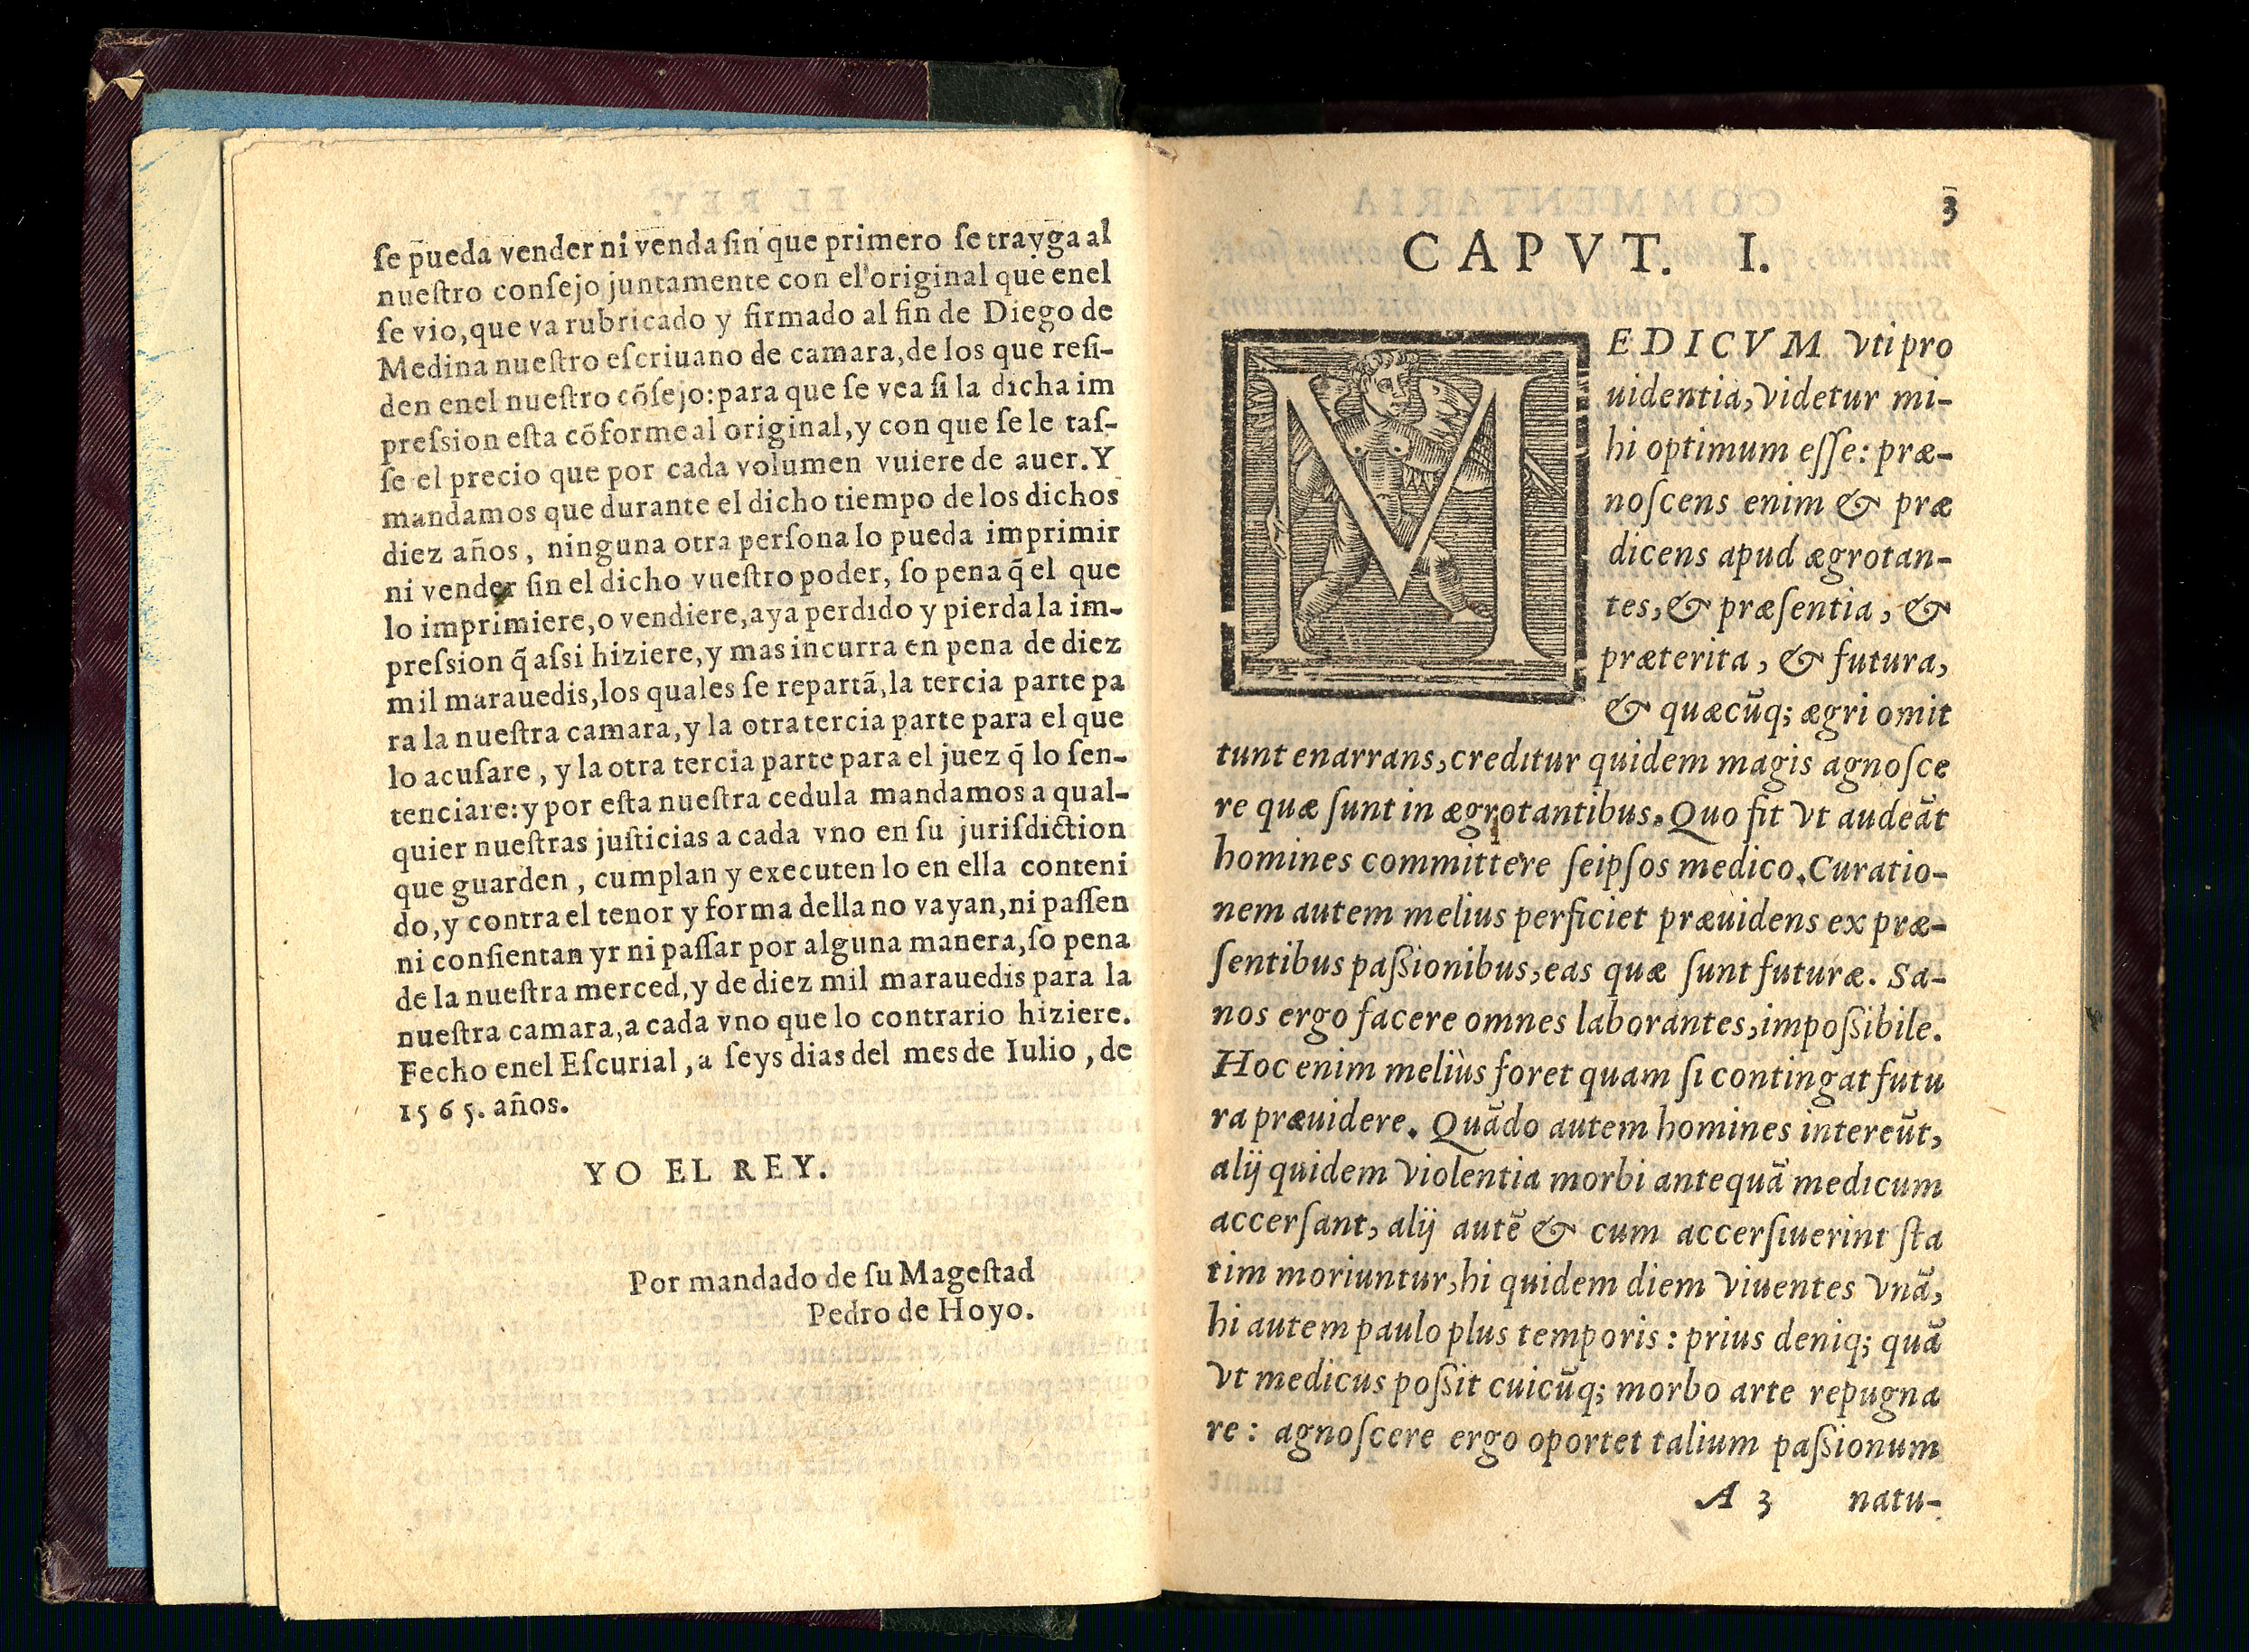 se pueda vender ni venda sin que primero se trayga al
nuestro consejo juntamente con el original que enel
se vio, que va rubricado y firmado al fin de Diego de
Medina nuestro escriuano de camara, de los que resi-
den enel nuestro cõsejo: para que se vea si la dicha im
pression esta cõforme al original, y con que se le tas-
se el precio que por cada volumen vuiere de auer. Y
mandamos que durante el dicho tiempo de los dichos
diez años, ninguna otra persona lo pueda imprimir
ni vender sin el dicho vuestro poder, so pena q̃ el que
lo imprimiere, o vendiere, aya perdido y pierda la im-
pression q̃ assi hiziere, y mas incurra en pena de diez
mil marauedis, los quales se repartã, la tercia parte pa
ra la nuestra camara, y la otra tercia parte para el que
lo acusare, y la otra tercia parte para el juez q̃ lo sen-
tenciare: y por esta nuestra cedula mandamos a qual-
quier nuestras justicias a cada vno en su jurisdiction
que guarden, cumplan y executen lo en ella conteni
do, y contra el tenor y forma della no vayan, ni passen
ni consientan yr ni passar por alguna manera, so pena
de la nuestra merced, y de diez mil marauedis para la
nuestra camara, a cada vno que lo contrario hiziere.
Fecho enel Escurial, a seys dias del mes de Iulio, de
1565. años.
YO EL REY.
Por mandado de su Magestad
Pedro de Hoyo.
3
CAPVT. I.
MEDICVM vti pro
uidentia, videtur mi-
hi optimum esse: præ-
noscens enim & præ
dicens apud ægrotan-
tes, & præsentia, &
præterita, & futura,
& quæcũq; ægri omit
tunt enarrans, creditur quidem magis agnosce
re quæ sunt in ægrotantibus. Quo fit vt audeãt
homines committere seipsos medico. Curatio-
nem autem melius perficiet præuidens ex præ-
sentibus passionibus, eas quæ sunt futuræ. Sa-
nos ergo facere omnes laborantes, impossibile.
Hoc enim meliùs foret quam si contingat futu
ra præuidere. Quãdo autem homines intereũt,
alij quidem violentia morbi antequã medicum
accersant, alij autẽ & cum accersiuerint sta
tim moriuntur, hi quidem diem viuentes vnã,
hi autem paulo plus temporis: prius deniq; quã
vt medicus possit cuicũq; morbo arte repugna
re: agnoscere ergo oportet talium passionum
A 3 natu-